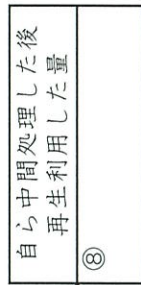 自ら中間処理した後
再生利用した量
⑧